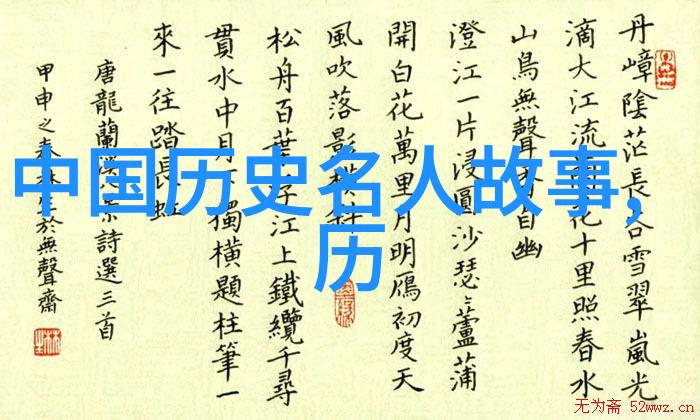 丹嶂陰茫長谷雪翠嵐光
滴大江流花十里照春水
山鳥無聲香自幽
澄江一片浸圓沙瑟瑟蘆蒲
開白花萬里月明鴈初度天
風吹落影橫斜
松舟百葉江上鐵纜千尋
貫水中月獨橫題柱筆一
來一往踏長虹
唐龍蘭溪詩選三首
甲申之春於無聲齋
中国历史名人故事,
历
无为斋 52wwz.cn